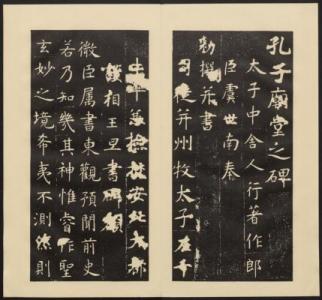 孔子廟堂之碑
太子中舍人行著作郎
臣虞世南奉
勅撰并書
司徒并州牧太子左千
相王旦書碑額
微臣属書東觀預聞前史
若乃知幾其神惟睿作聖
玄妙之境希夷不測然則